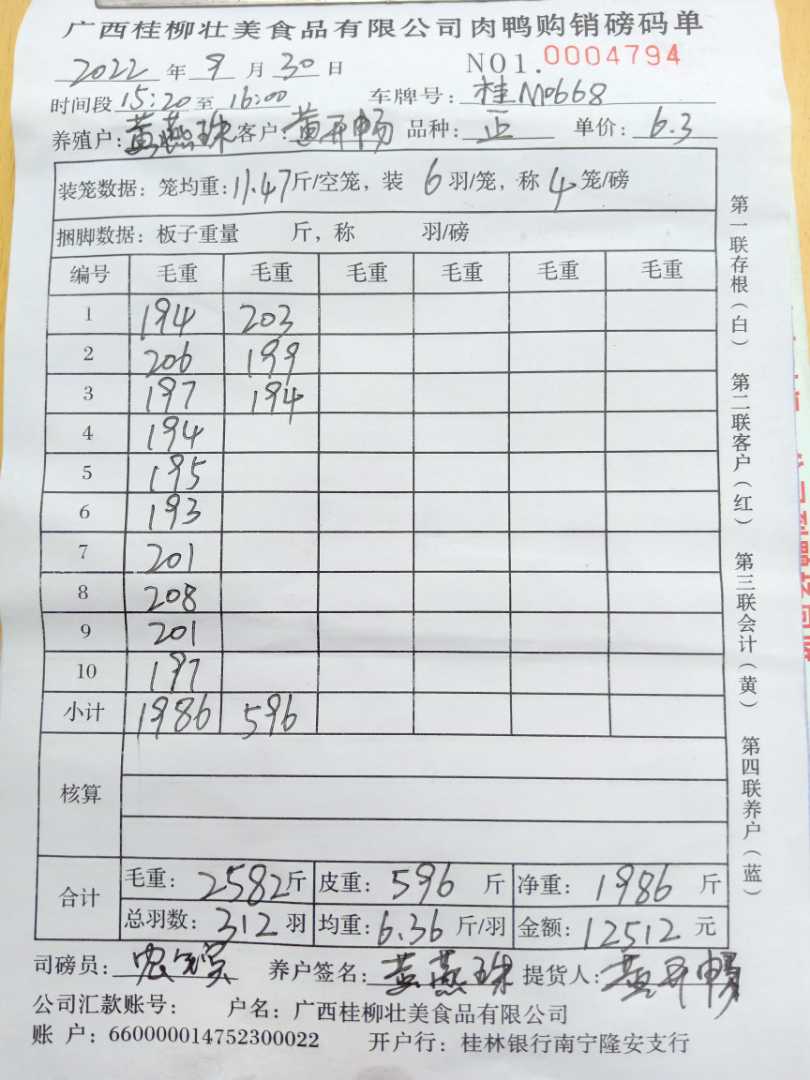 广西桂柳壮美食品有限公司肉鸭购销磅码单
2022 年 9 月 30 日 NO1. 0004794
时间段 15:20 至 16:00 车牌号: 桂M0668
养殖户: 黄燕珠 客户: 黄开畅 品种: 正 单价: 6.3
装笼数据: 笼均重: 11.47 斤/空笼, 装 6 羽/笼, 称 4 笼/磅
捆脚数据: 板子重量 斤, 称 羽/磅
编号 毛重 毛重 毛重 毛重 毛重 毛重
1 194 203
2 206 199
3 197 194
4 194
5 195
6 193
7 201
8 208
9 201
10 197
小计 1986 596
核算
合计 毛重: 2582 斤 皮重: 596 斤 净重: 1986 斤
总羽数: 312 羽 均重: 6.36 斤/羽 金额: 12512 元
司磅员: 养户签名: 黄燕珠 提货人: 黄开畅
公司汇款账号: 户名: 广西桂柳壮美食品有限公司
账 户: 660000014752300022 开户行: 桂林银行南宁隆安支行
第一联存根(白) 第二联客户(红) 第三联会计(黄) 第四联养户(蓝)